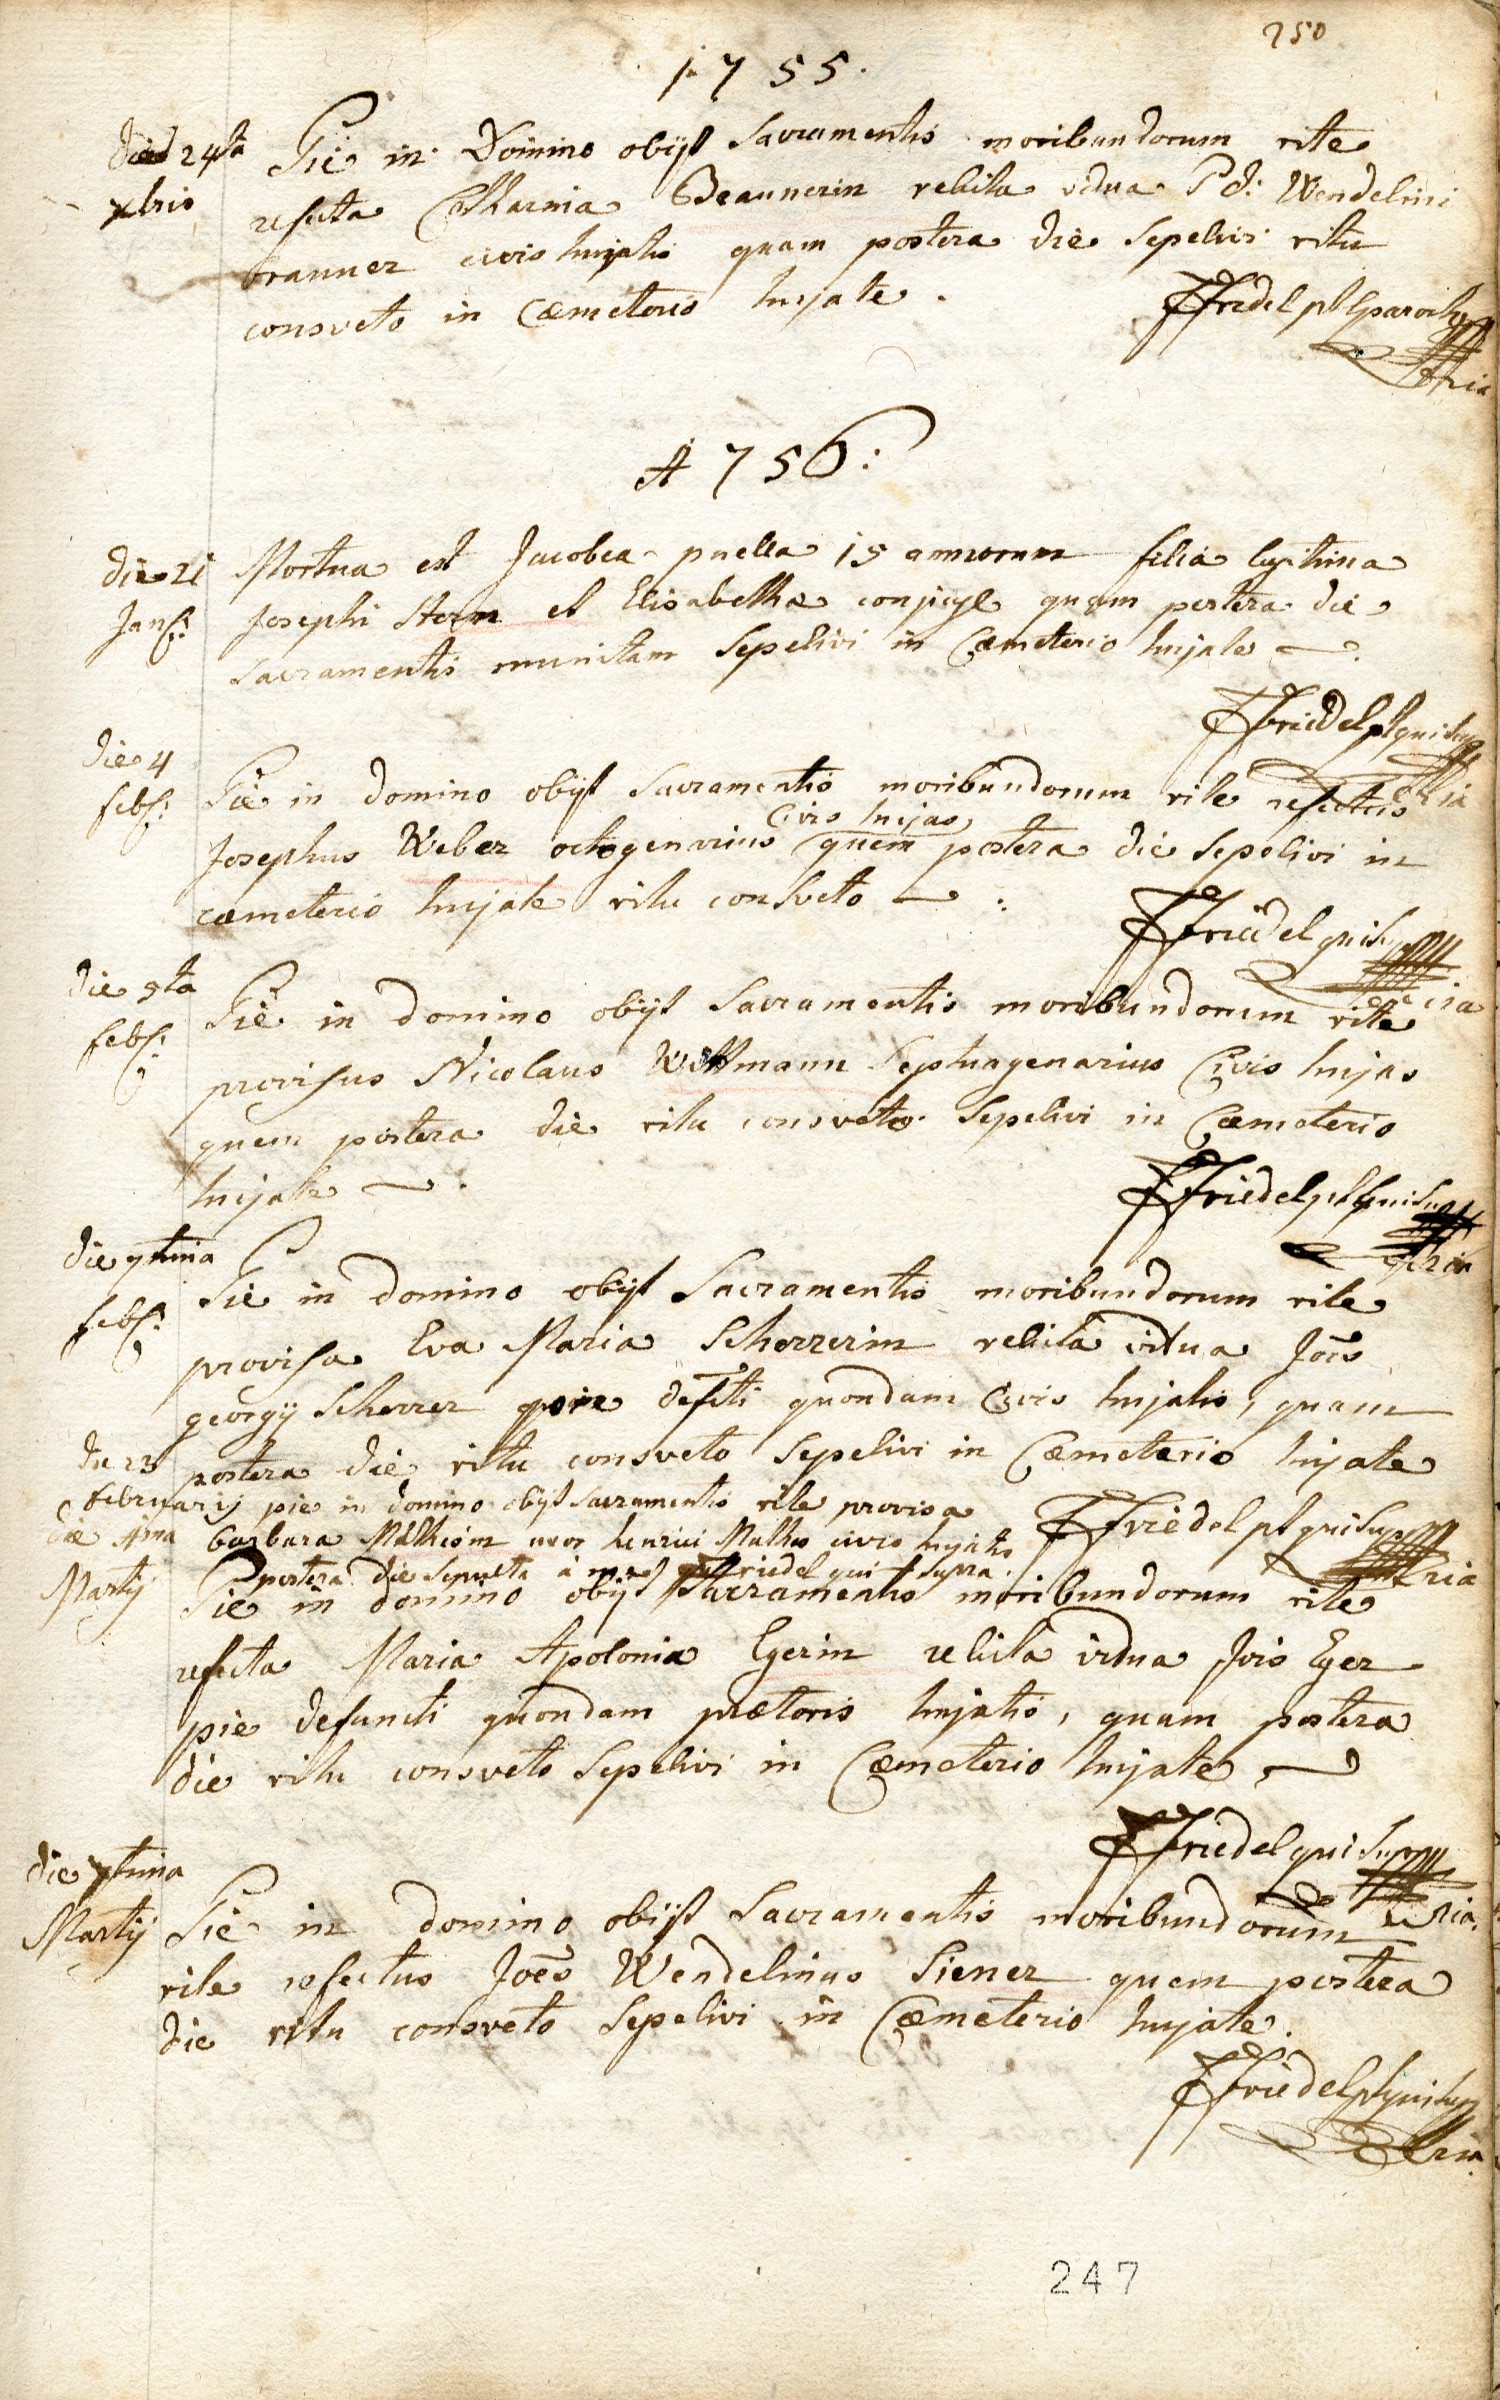 250
1755.
die 24ta Pie in Domino obijt Sacramentis moribundorum rite
xbris refecta Catharina Braunerin relicta vidua P d: Wendelini
Brauner civis hujatis quam postera die Sepelivi ritu
consveto in Cæmeterio hujate.
FFriedel pl parochus
mpria
A 756:
die 21 Mortua est Jacobea puella 15 annorum filia legitima
Jan: Josephi Stern et Elisabethæ conjugū quam postera die
Sacramentis munitam Sepelivi in Cæmeterio hujate
FFriedel pl qui supra
mpria
die 4
feb: Pie in domino obijt Sacramentis moribundorum rite refectus
Civis hujas
Josephus Weber octogenarius quem postera die Sepelivi in
cæmeterio hujate ritu consveto
FFriedel qui supra
mpria
die 5ta Pie in domino obijt Sacramentis moribundorum rite
feb: provisus Nicolaus Wittmann Septuagenarius Civis hujas
quem postera die ritu consveto Sepelivi in Cæmeterio
hujate.
FFriedel pl qui supra
mpria
die 7tima Pie in domino obijt Sacramentis moribundorum rite
feb: provisa Eva Maria Scherrerin relicta vidua Joēs
georgij Scherrer pie defcti quondam Civis hujatis, quam
postera die ritu consveto Sepelivi in Cæmeterio hujate
die 23 februarij pie in domino obijt Sacramentis rite provisa
barbara Mathesin uxor henrici Mathes civis hujatis
postera die Sepulta à me FFriedel qui supra
FFriedel pl qui supra
mpria
die 4ma
Martij Pie in domino obijt Sacramentis moribundorum rite
refecta Maria Apolonia Egerin relicta vidua Jois Eger
pie defuncti quondam prætoris hujatis, quam postera
die ritu consveto Sepelivi in Cæmeterio hujate
FFriedel qui supra
mpria
die 7tima
Martij Pie in domino obijt Sacramentis moribundorum
rite refectus Joēs Wendelinus Siener quem postera
die ritu consveto Sepelivi in Cæmeterio hujate.
FFriedel pl qui supra
mpria
247